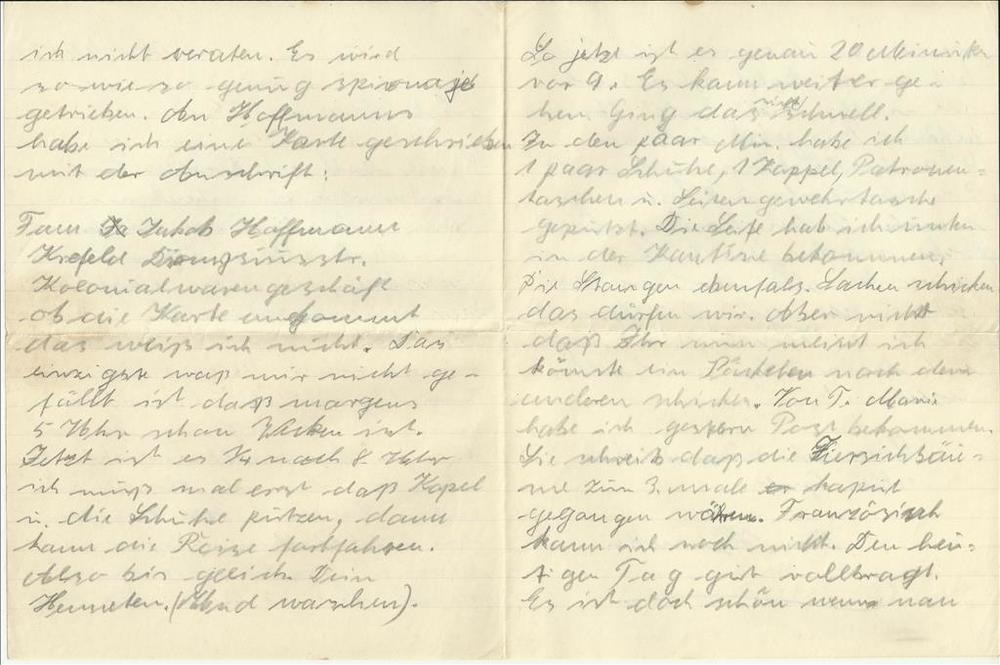 ich nicht veraten. Es wird
so wie so genug spionaje
getrieben. An Hoffmanns
habe ich eine Karte geschrieben
mit der Anschrift:
Fam Jakob Hoffmann
Krefeld
Kolonialwarengeschäft
ob die Karte ankommt
das weiß ich nicht. Das
einzigste waß mir nicht ge-
fällt ist daß morgens
5 Uhr schon Wecken ist.
Jetzt ist es ¼ nach 8 Uhr
ich muß mal erst daß Kapel
u. die Schuhe putzen, dann
kann die Reise fortfahren.
Also bis gleich. Dein
(Hemd waschen).
So jetzt ist es genau 20 Minuten
vor 9. Es kann weiter ge-
hen Ging das nicht schnell.
In den paar Min. habe ich
1 paar Schuhe, 1 Kappel, Patronen-
taschen u. Seitengewehrtasche
geputzt. Die Seife hab ich unten
in der Kantine bekommen,
Die Stangen ebenfals. Sachen schicken
das dürfen wir. Aber nicht
daß Ihr nun meint ich
könnte ein Päckchen nach dem
anderen schicken. Von T. Maria
habe ich gestern Post bekommen.
Sie schreib daß die Fiersichbäu-
me zum 3. male kaput
gegangen wären. Französisch
kann ich noch nicht. Den heu-
tigen Tag gut vollbragt.
Es ist doch schön wenn man